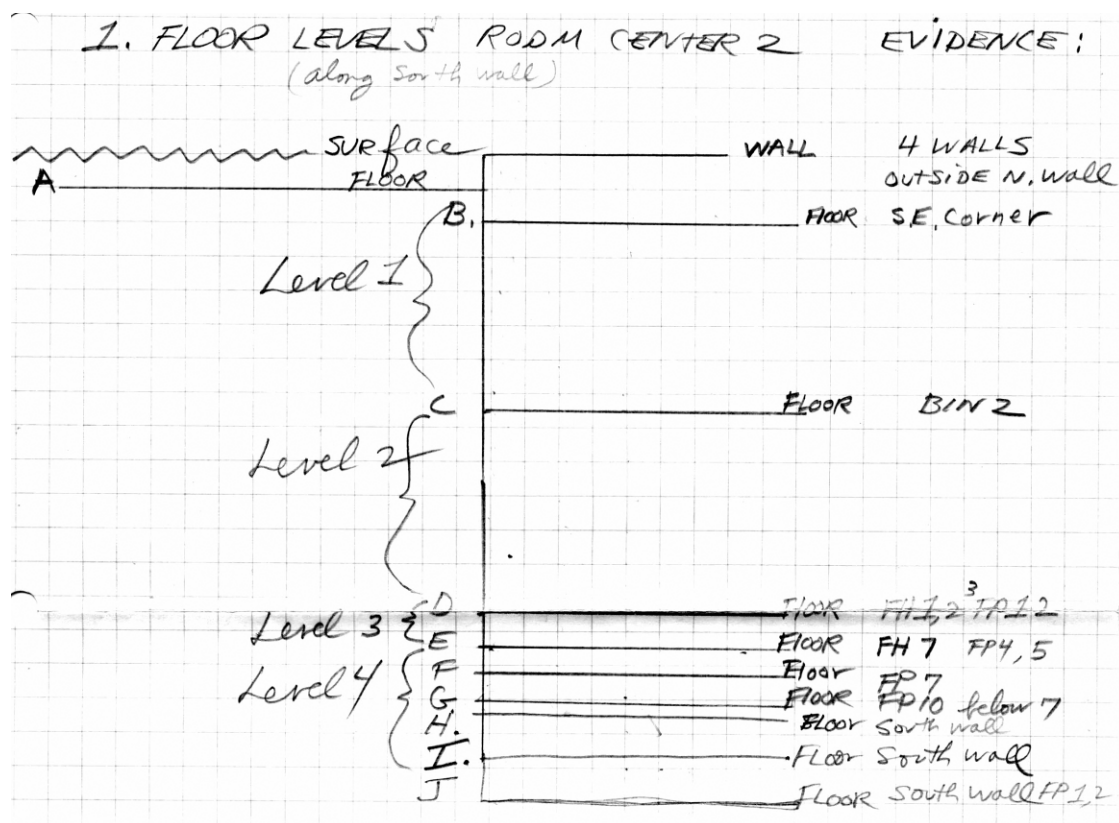 1. FLOOR LEVELS ROOM CENTER 2 EVIDENCE:
(along South wall)
SURface WALL 4 WALLS
A FLOOR OUTSIDE N. Wall
B. FLOOR S.E. Corner
Level 1
C FLOOR BIN 2
Level 2
D FLOOR FH 1, 2 3 FP 1 2
Level 3
E FLOOR FH 7 FP4, 5
F Floor FP 7
Level 4
G FLOOR FP10 below 7
H. FLoor South wall
I. FLoor South wall
J FLOOR South wall FP 1, 2